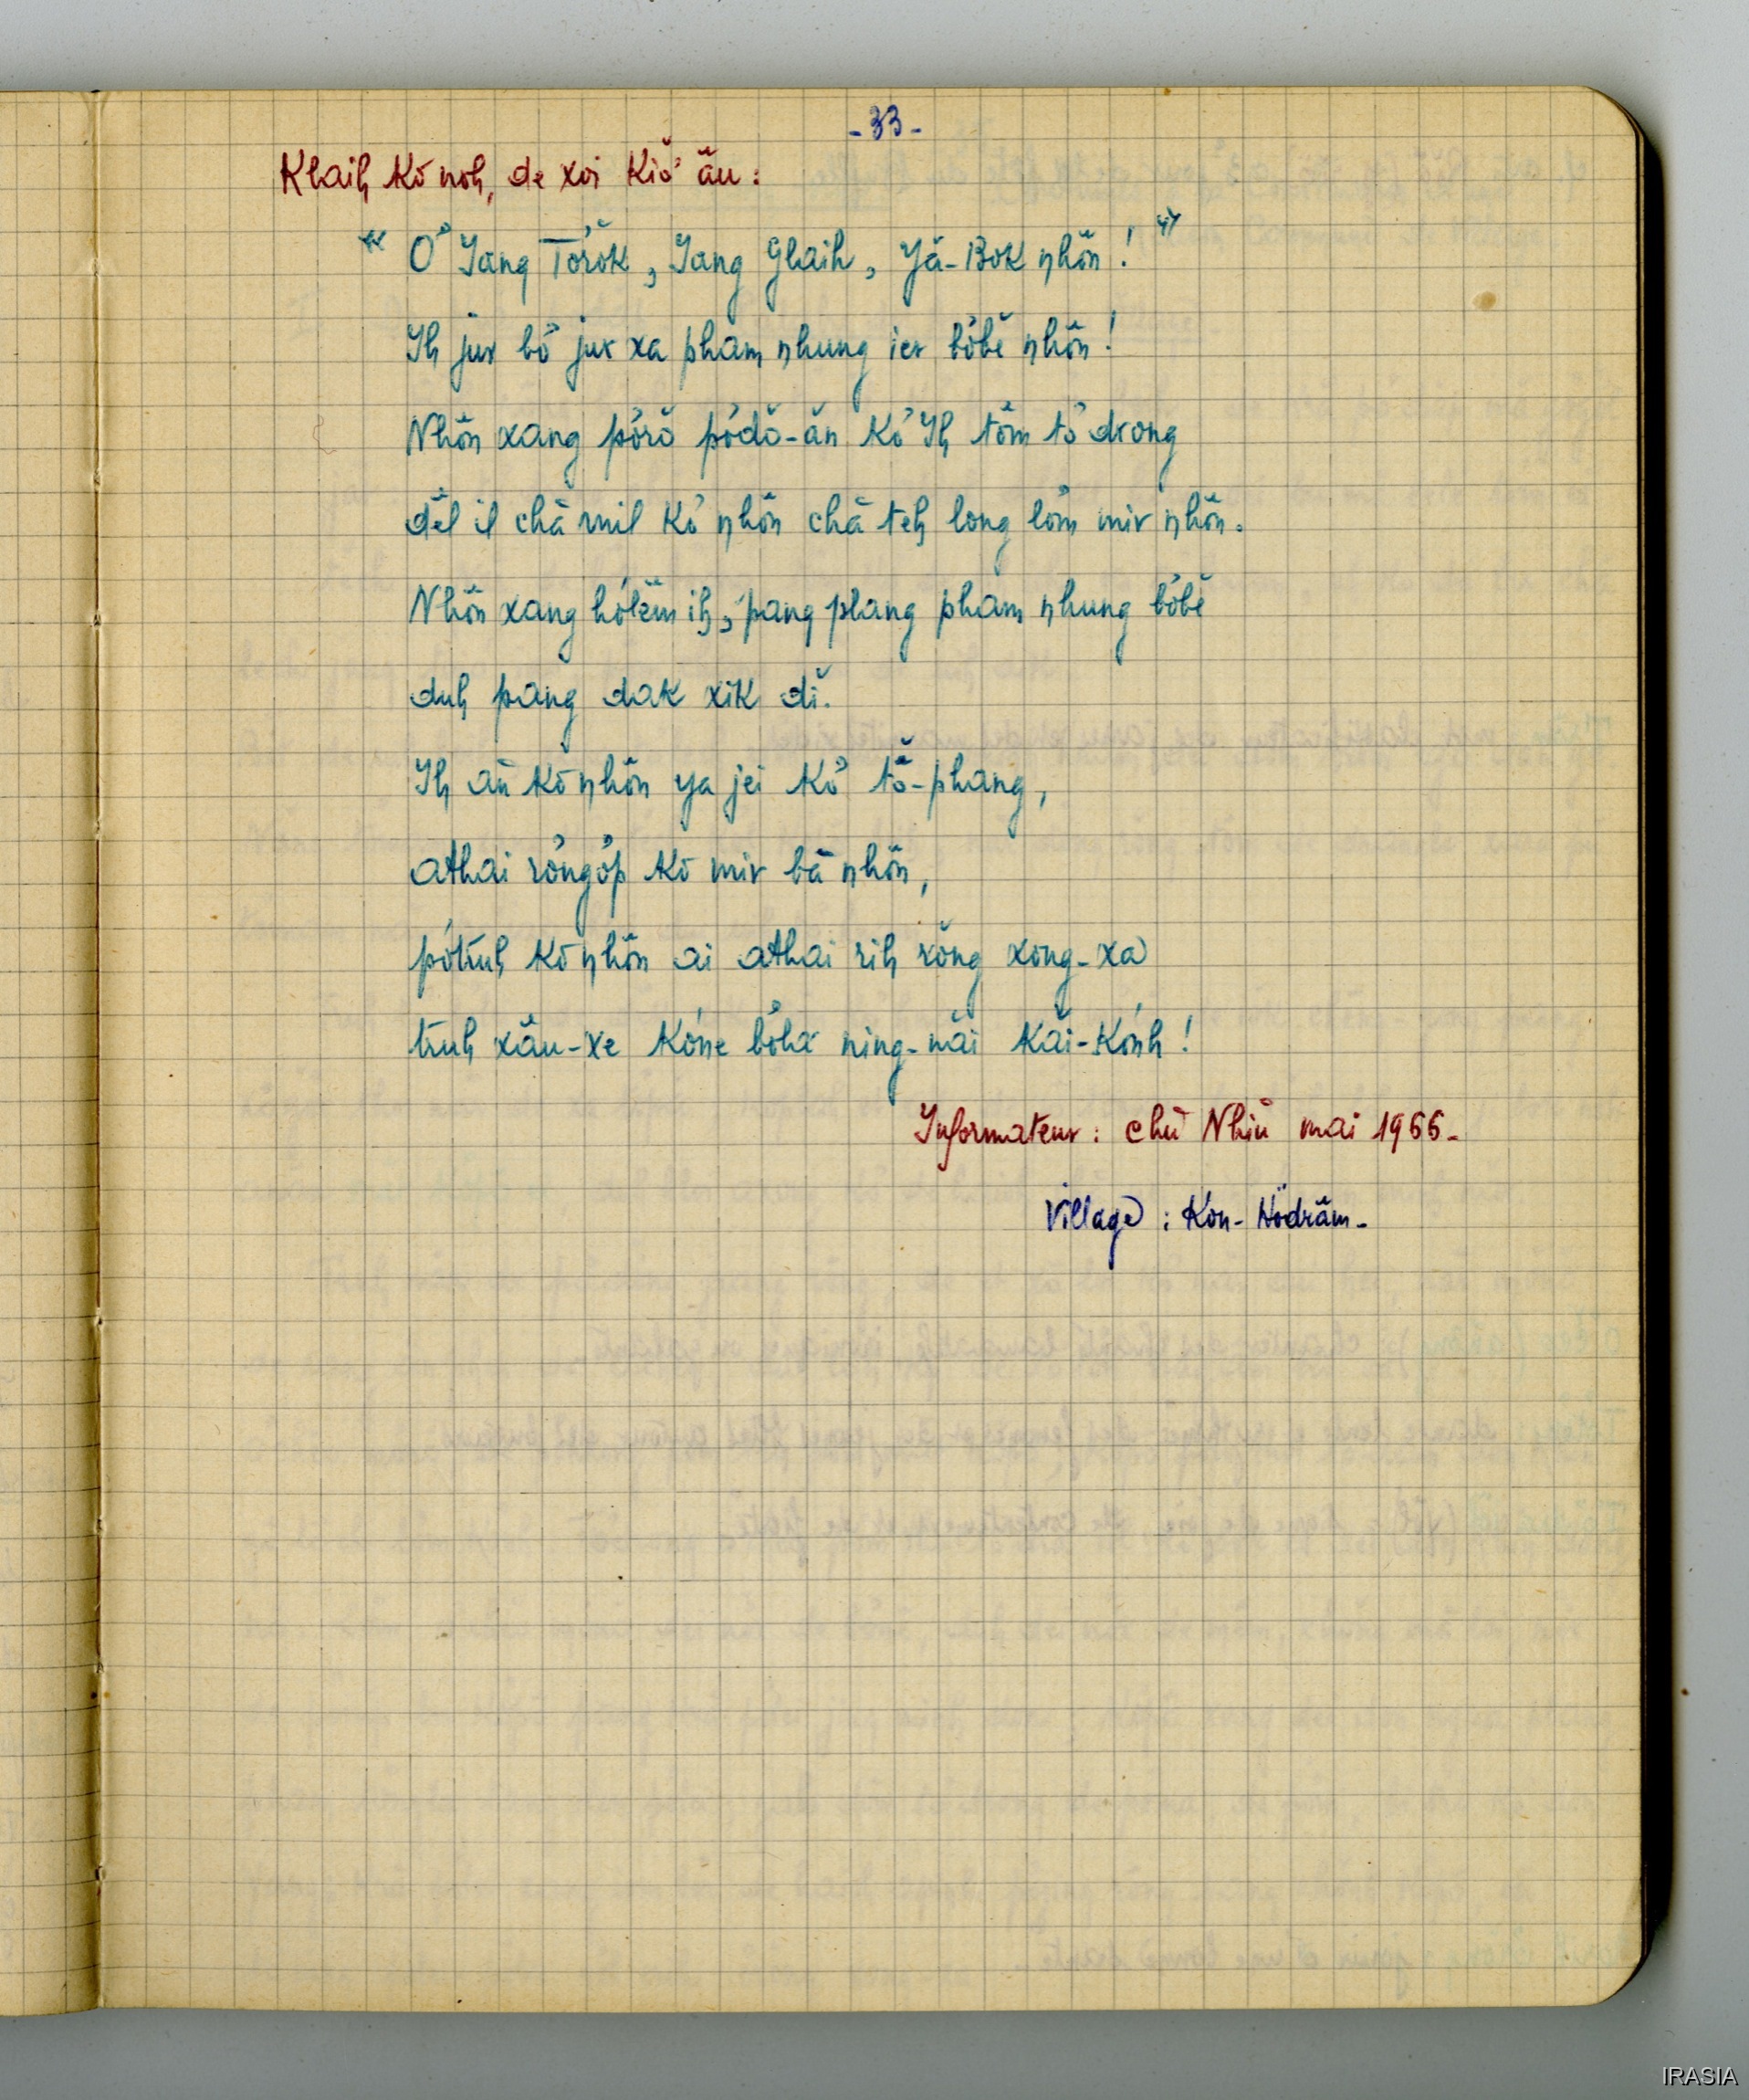 - 33 -
Klaih kơ noh, de xoi kiơ̆ âu:
« Ơ Yang Tơrŏk, Yang Glaih, Yă-Bok nhôn ! »
Ih jur bơ̆ jur xa pham nhung ier bơbĕ nhôn !
Nhôn xang pơrŏ pơdŏ-ăn kơ Ih tôm tơdrong
dêl il chă mil kơ nhôn chă teh long lơ̆m mir nhôn.
Nhôn xang hơlêm ih, pang plang pham nhung bơbĕ
duh pang dak xik dĭ.
Ih ăn kơ nhôn ya jei kơ tơ̆-phang,
athai rơngơ̆p kơ mir bă nhôn,
pơtruh kơ nhôn ai athai rih rŏng xong-xa
truh xâu-xe kơne bơla ning-năi kăi-kơnh !
Informateur : chŭ Nhiŭ mai 1966-
Village : Kon-Hơdrâm-
IRASIA